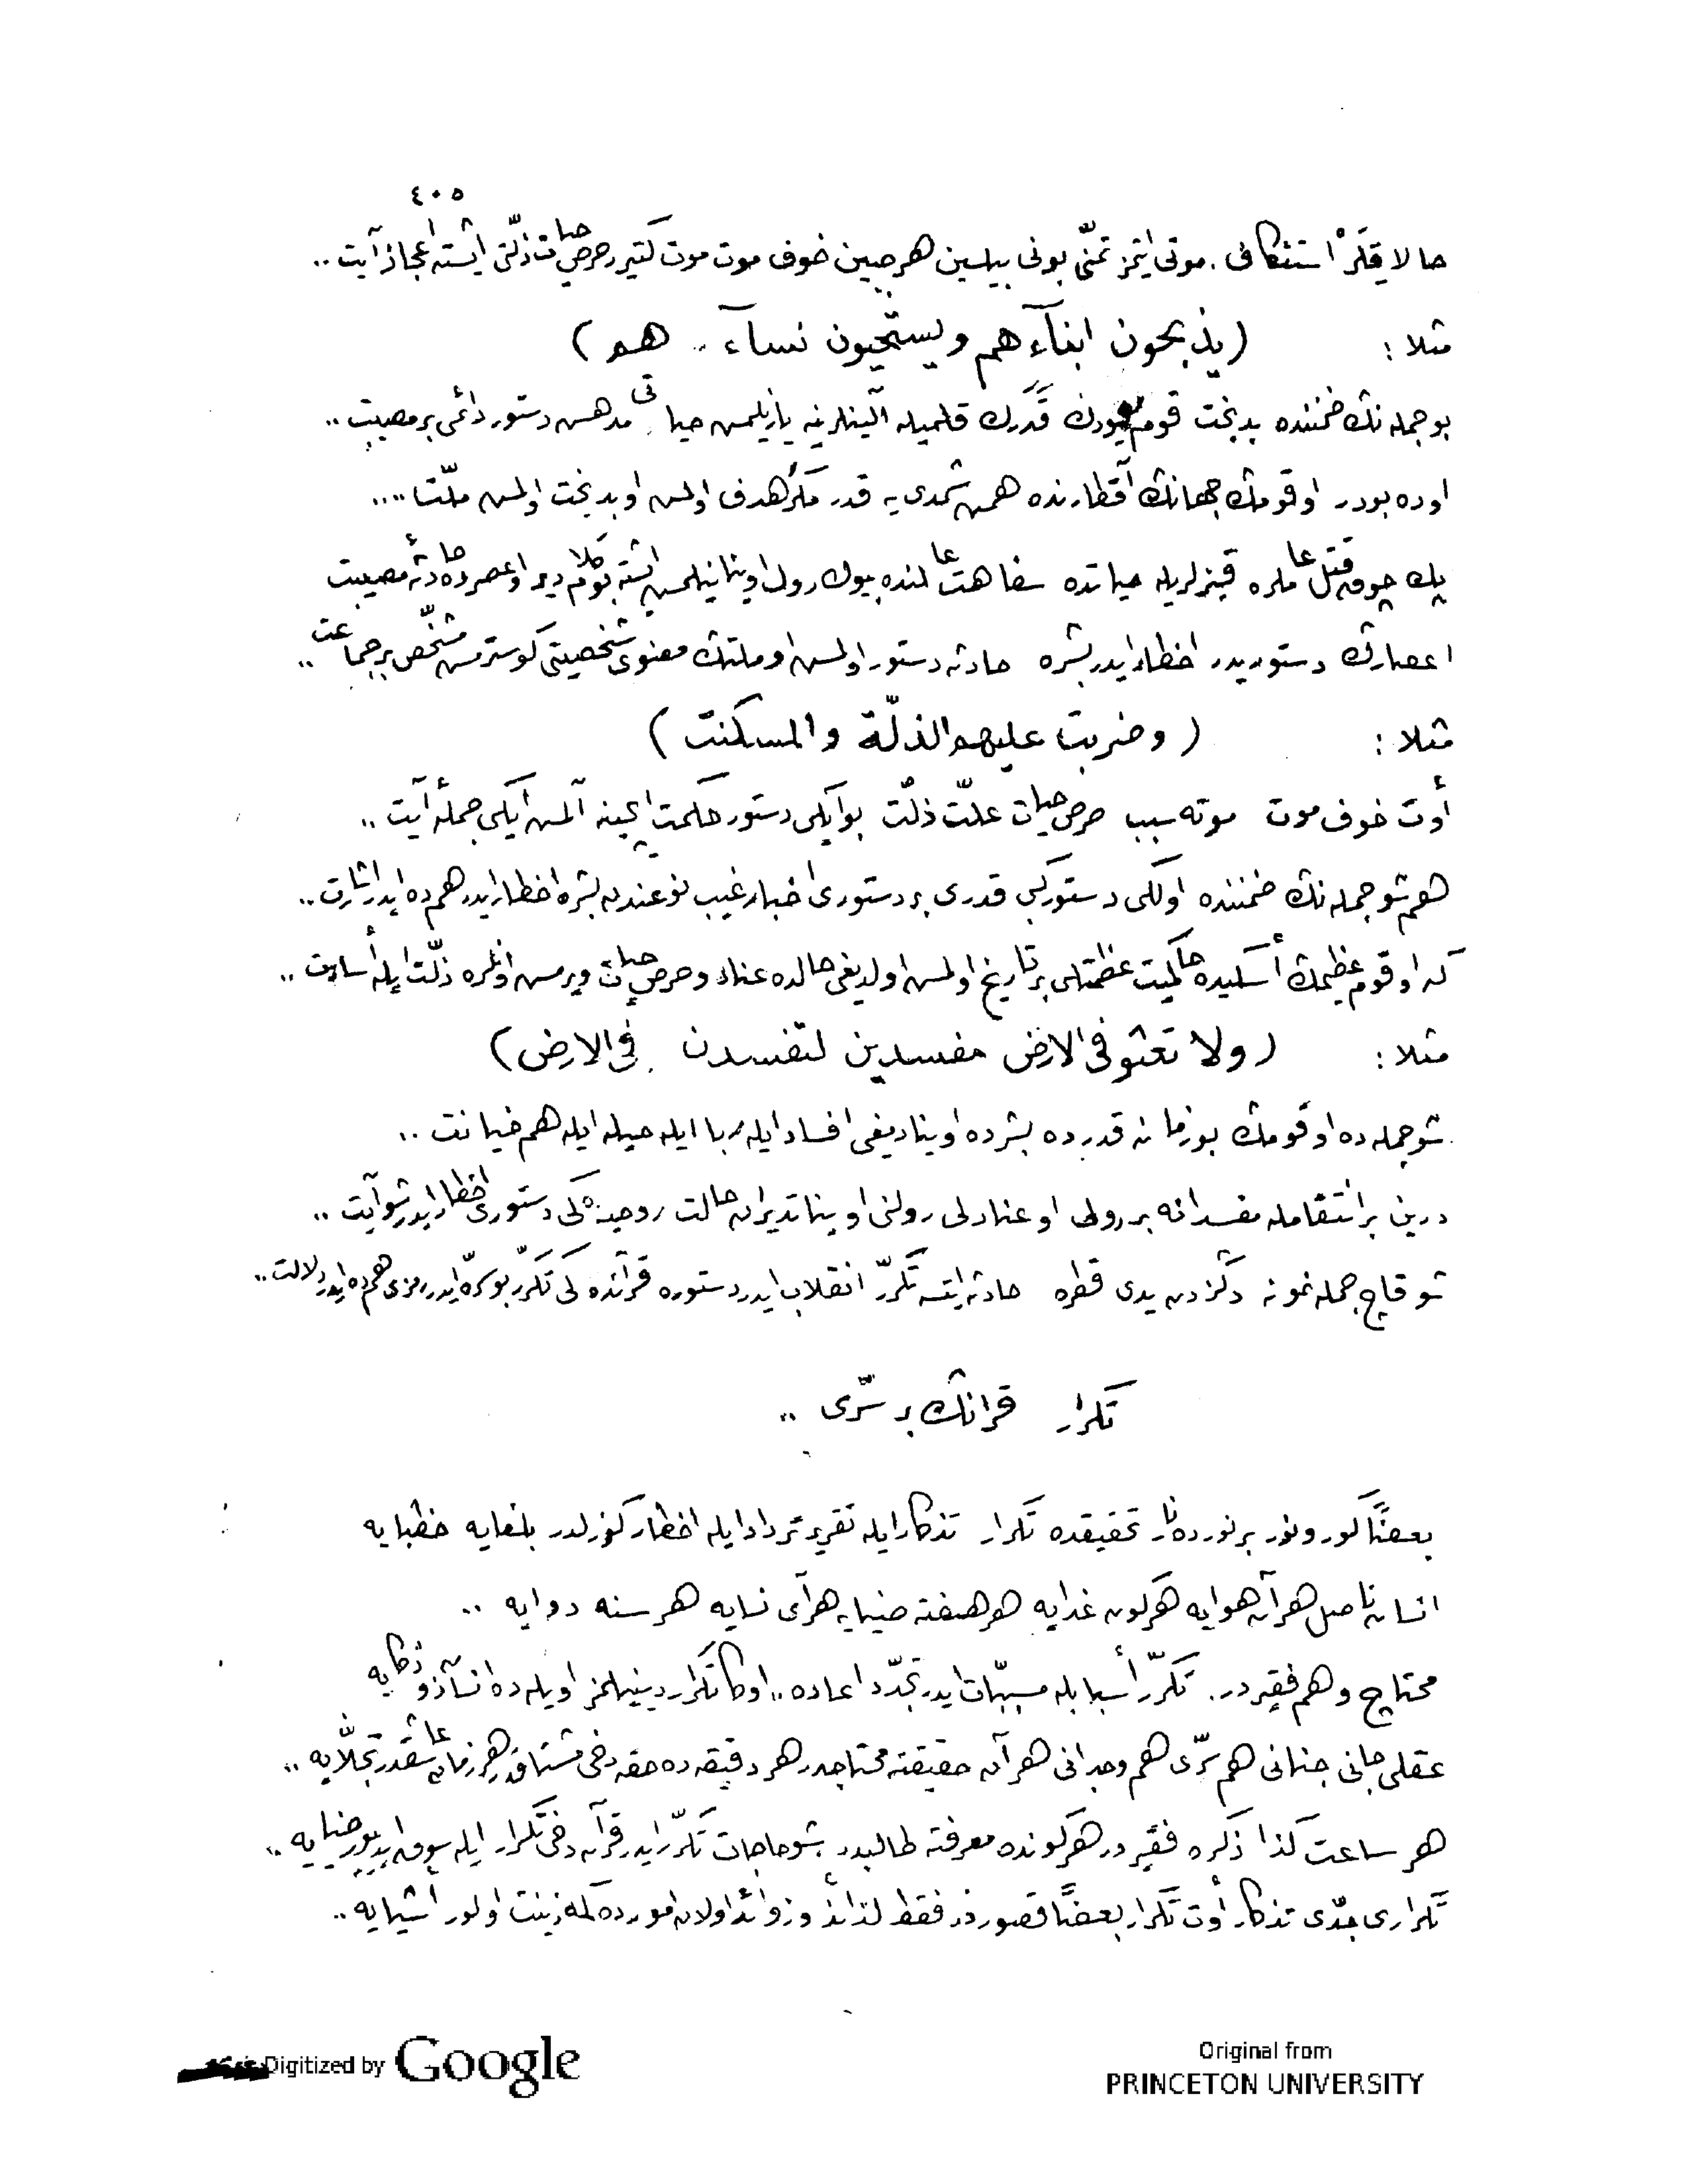 ٤٠٥
حالا قلَرْ استنكافى. موتى ايتمز تمنّى بونى بيلسين هر حين خوف موت موت كتيرر حرص حيات ذلّتى ايشته اعجاز آيت ..
مثلا : (يذبحون ابنآءهم ويستحيون نسآء .. هم)
بو جمله نڭ ضمننده بدبخت قوم يهودڭ قَدَرڭ قلميله آلينلرينه يازيلمس حياتى مدهس دستور دائمى بر مصيبت ..
او ده بودر او قومڭ جهانڭ اقطارنده همس شمدى يه قدر مكرّ هدف اولمس او بدبخت اولمس ملّت ....
پك چوق قتل عاملره قيزلريله حياتده سفاهت عالمنده بيوك رولى اوينانيلمس ايشته بو كلام دير او عصرده حادثهٔ مصيبت
اعصارڭ دستوريدر اخطار ايدر بشره حادثه دستور اولمس او ملتڭ معنوى شخصيتى كوسترمس مشخّص بر جماعت ..
مثلا : (وضربت عليهم الذلّة والمسكنت)
أوت خوف موت موته سبب حرص حيات علّت ذلّت بو ايكى دستور حكمت ايچينه آلمس ايكى جملهٔ آيت ..
هم شو جمله نڭ ضمننده اولكى دستور كبى قدرى بر دستورى اخبار غيب نوعندن بشره اخطار ايدر هم ده ايدر اشارت ..
كه او قوم عظيمڭ أسكيده حاكميت عظمتلى بر تاريخ اولمس اولديغى حالده عناد و حرص حيات ويرمس اونلره ذلّت ايله أسارت ..
مثلا : (ولا تعثو فى الارض مفسدين لتفسدن فى الارض)
شو جمله ده او قومڭ بو زمانه قدر ده بشرده اوينا ديغى افساد ايله ربا ايله حيله ايله هم خيانت ..
درين بر انتقامله مفسدانه بر رولى او عنادلى رولنى اوينا تديران حالت روحيه ده كى دستورى اخطار ايدر شو آيت ..
شو قاچ جمله نمونه دڭزدن يدى قطره حادثه ايتسه تكرّر انقلاب ايدر دستوره قرآنده كى تكرّر بو سرّه ايدر رمزى هم ده ايدر دلالت ..
تكرار قرانڭ بر سرّى ..
بعضًا كورونور بر نورده نار تحقيقده تكرار تذكار ايله تقرير ترداد ايله اخطار كوزلدر بلغايه خطبايه
انسان ناصل هر آن هوايه هر كون غدايه هر هفته ضيايه هر آى نسايه هر سنه دوايه ..
محتاج و هم فقيردر. تكرّر أسبابله مسبّبات ايدر تجدّد اعاده .. اوكا تكرار دينيلمز اويله ده انسان ذو ذكايه
عقلى جانى جنانى هم سرّى هم وجدانى هر آن حقيقته محتاجدر هر دقيقه ده حقه دخى مشتاقدر هر زمان عاشقدر تجلّايه ..
هر ساعت كذا ذكره فقيردر هر كونده معرفته طالبدر شو حاجات تكرّر ايدر قرآن دخى تكرار ايله سوق ايدييور ضيايه ..
تكرارى جدّى تذكار أوت تكرار بعضًا قصوردر فقط لذائذ و زوائد اولان امورده كلمه زينت اولور اشيايه ..
Digitized by Google
Original from
PRINCETON UNIVERSITY